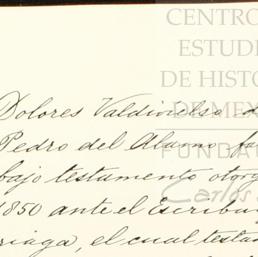 CENTRO
ESTUDI
DE HISTO
DE MEX
FUNDA
Carlos
Dolores Valdivielso d
Pedro del Alamo fa
bajo testamento otorg
1850 ante el Escriba
riaga, el cual testa